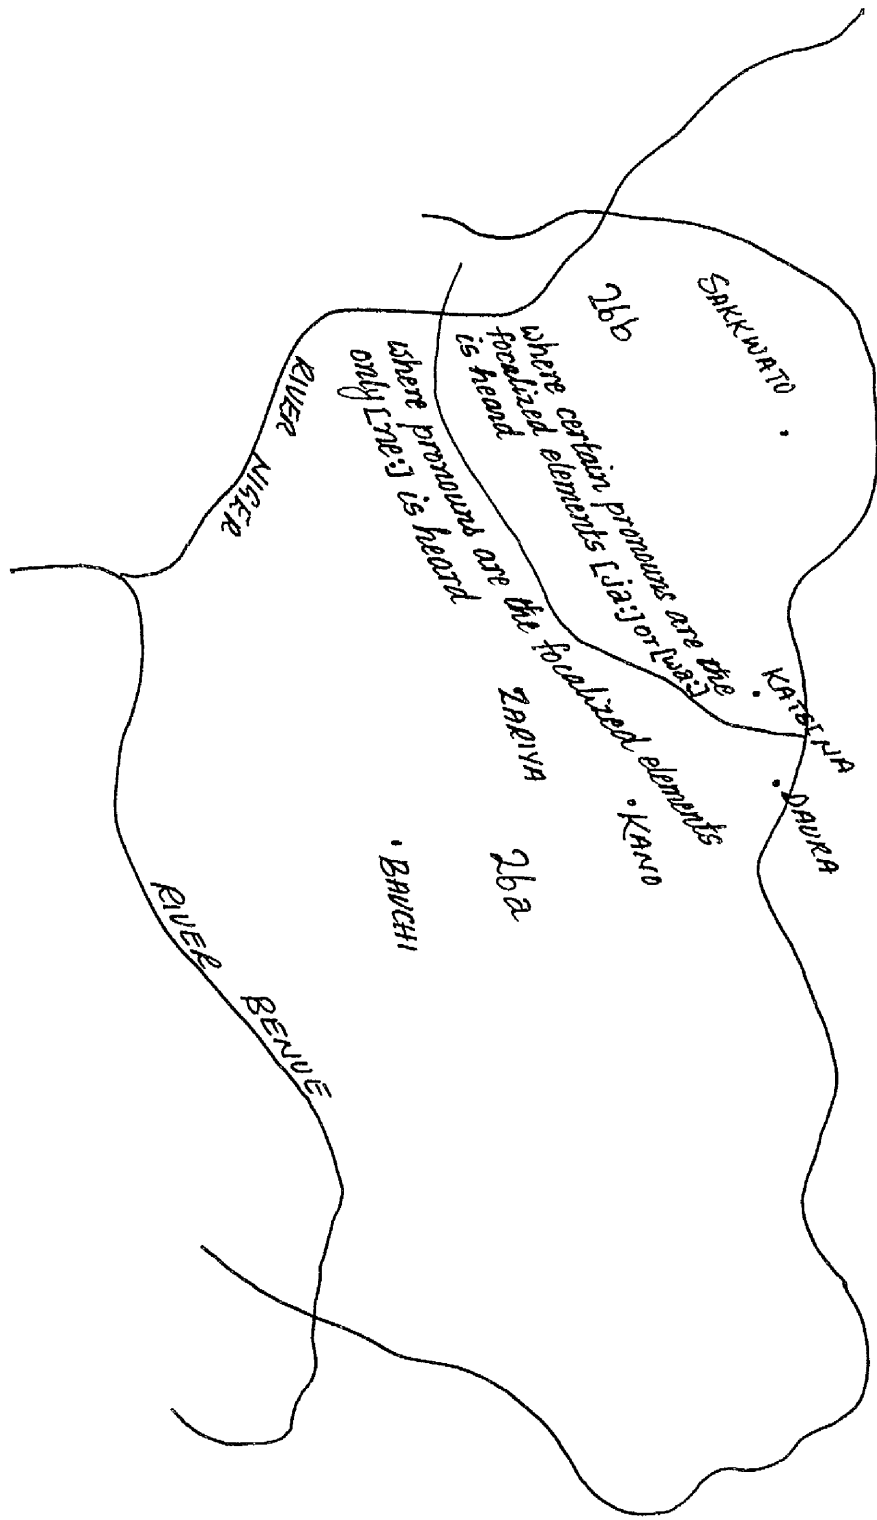 SAKKWATO
26b
where certain pronouns are the
focalized elements [ja:] or [wa:]
is heard
KATSINA
DAURA
where pronouns are the focalized elements
only [ne:] is heard
KANO
ZARIYA
26a
BAUCHI
RIVER NIGER
RIVER BENUE